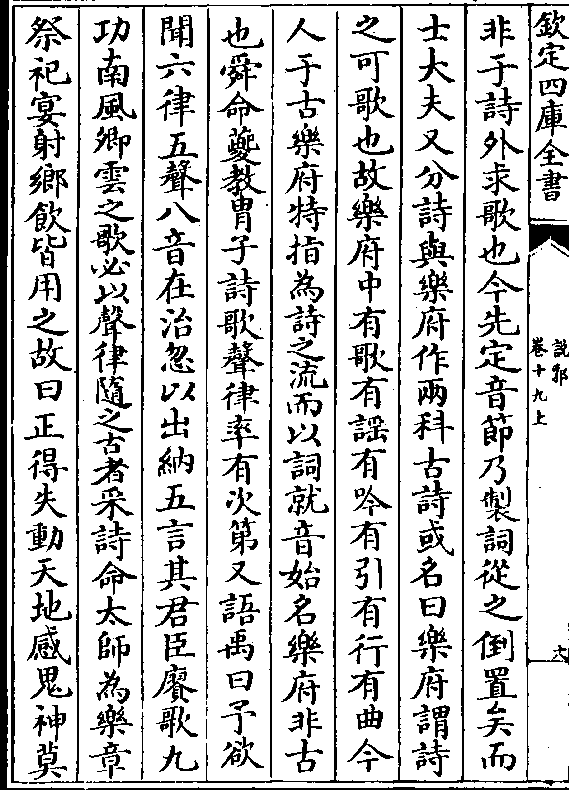 欽定四庫全書
說郛
卷十九上
非于詩外求歌也今先定音節乃製詞從之倒置矣而
士大夫又分詩與樂府作兩科古詩或名曰樂府謂詩
之可歌也故樂府中有歌有謡有吟有引有行有曲今
人于古樂府特指為詩之流而以詞就音始名樂府非古
也舜命夔教胄子詩歌聲律率有次第又語禹曰予欲
聞六律五聲八音在治忽以出納五言其君臣賡歌九
功南風卿雲之歌必以聲律隨之古者采詩命太師為樂章
祭祀宴射鄉飲皆用之故曰正得失動天地感鬼神莫